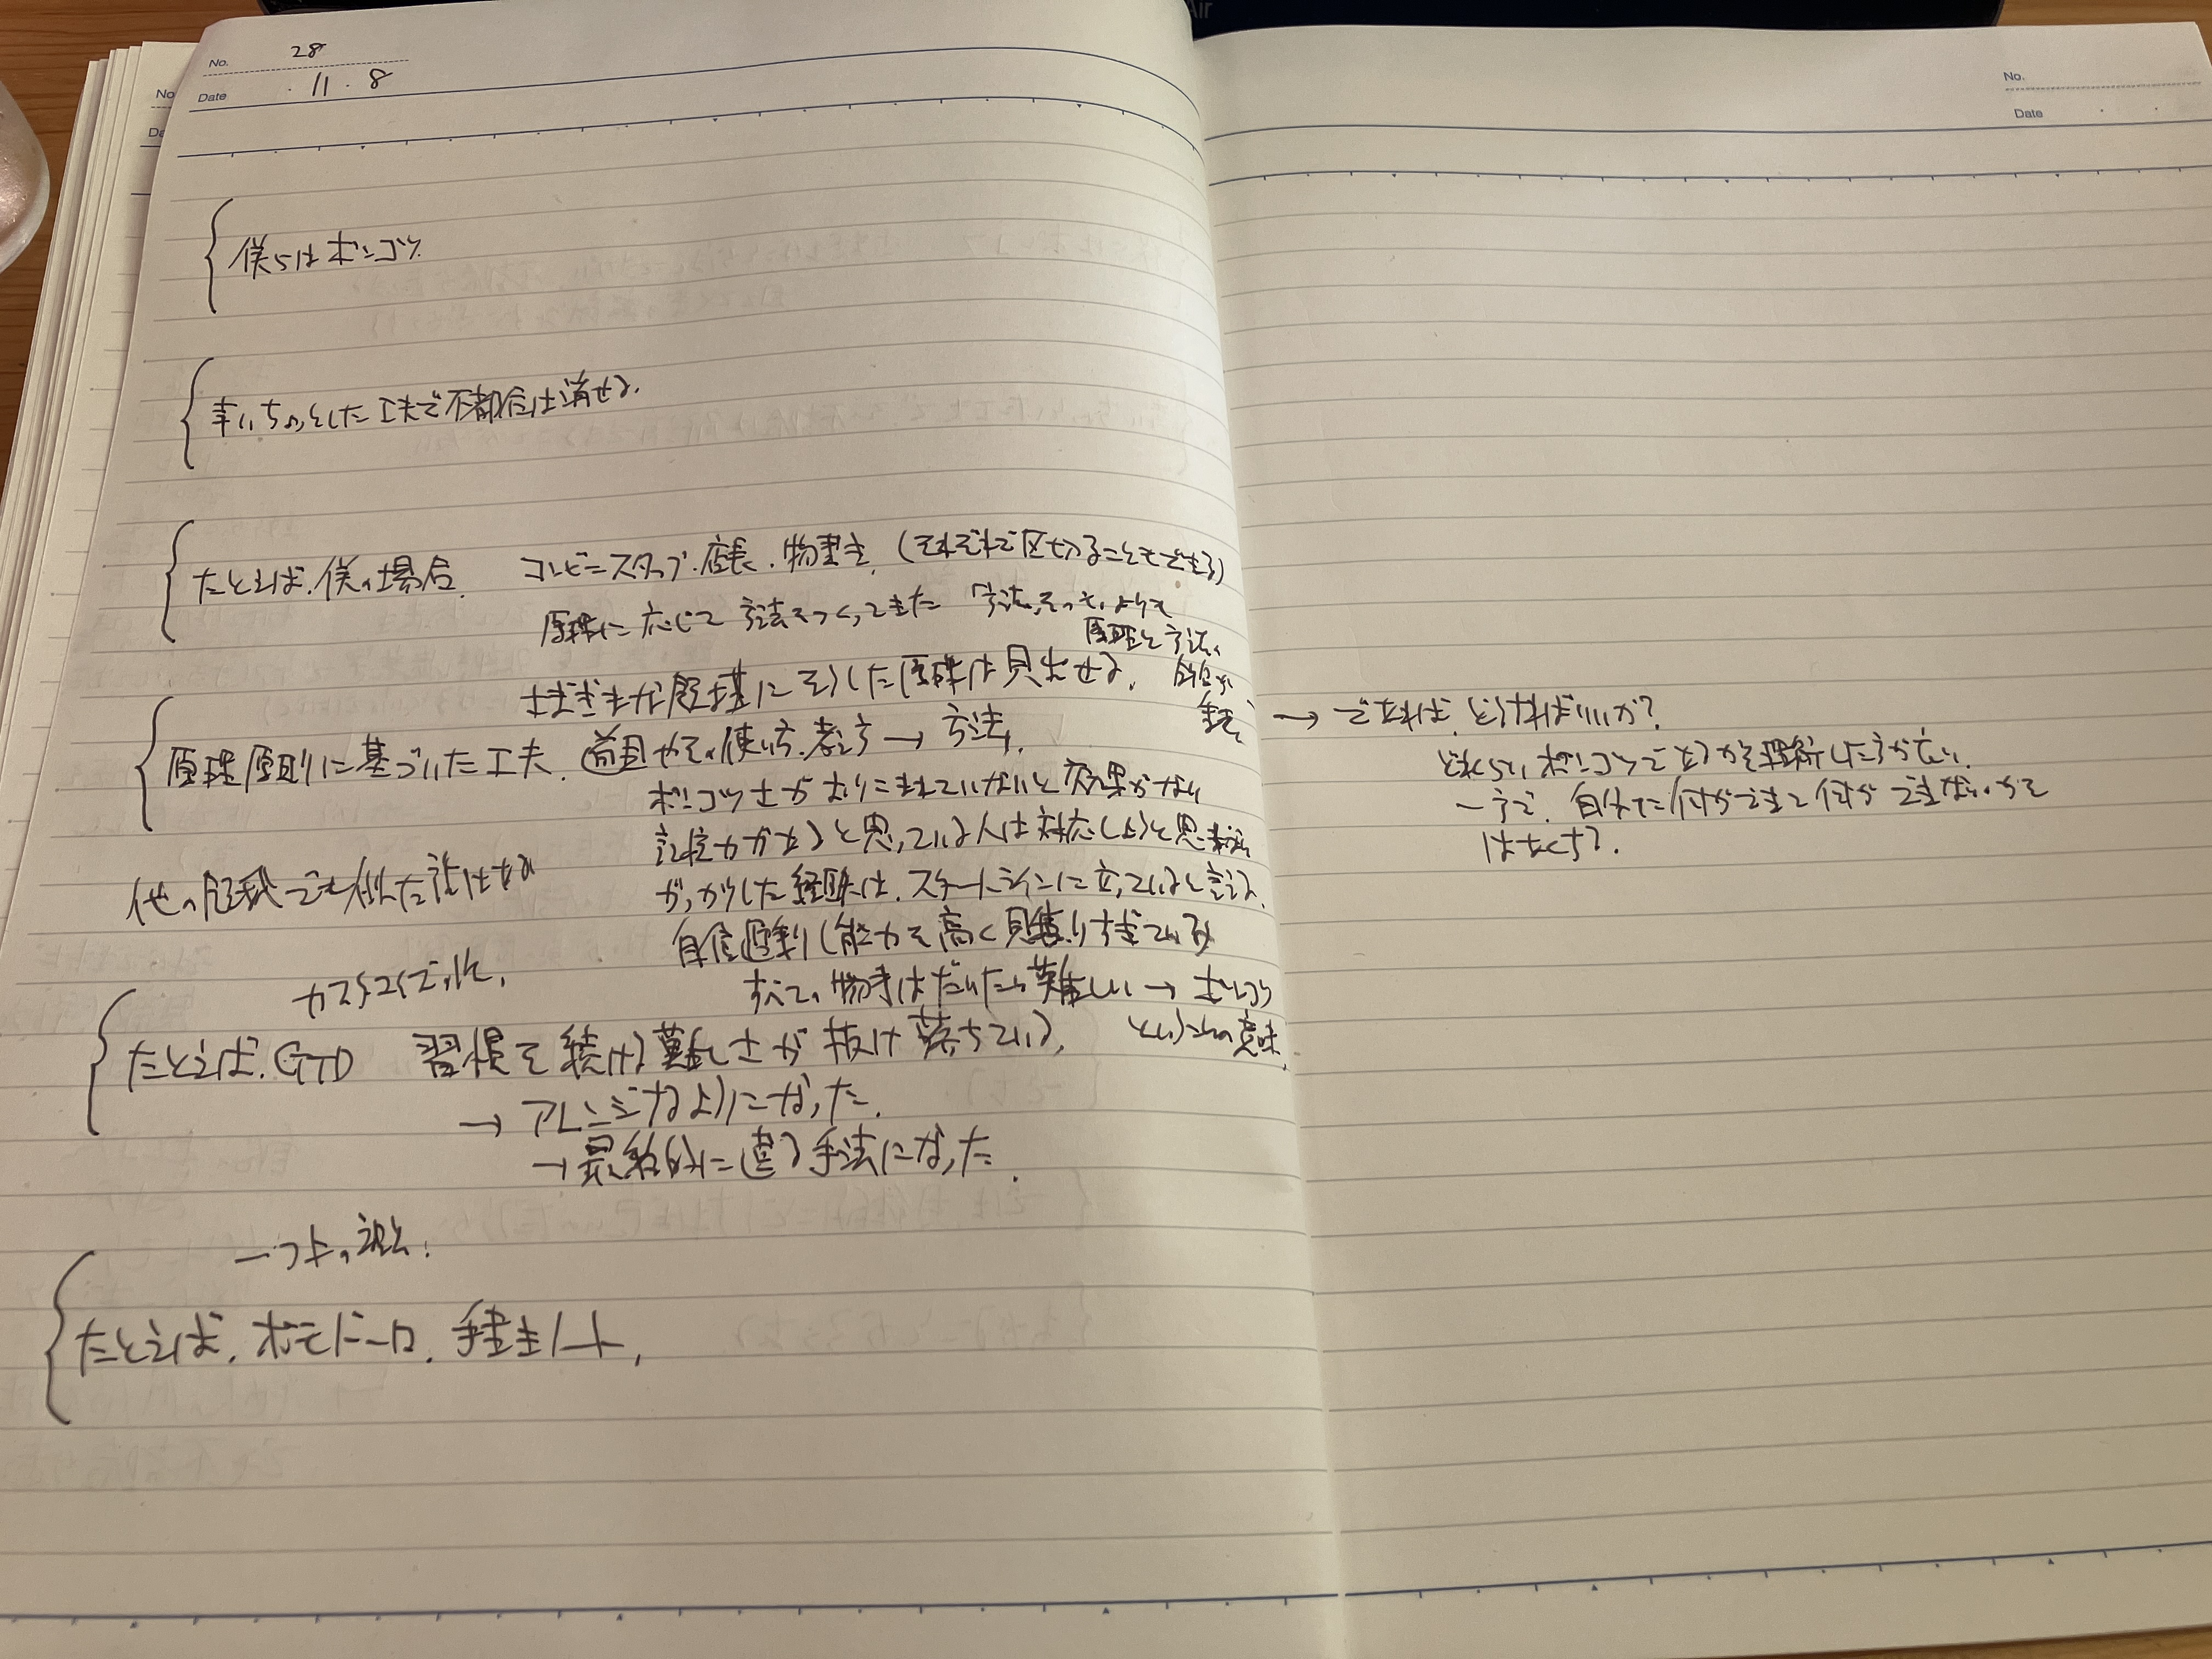 Air
No. 28
Date ・11・8
No.
Date
僕らはポンコツ.
幸い、ちょっとした工夫で不都合は消せる.
たとえば、僕の場合. コンビニスタッフ・店長・物書き. (それぞれで区切ることもできる)
原理に応じて方法をつくってきた
原理と方法
さまざまな場にそうした原理は見出せる.
原理原則に基づいた工夫. 道具やその使い方、考え方 → 方法.
ポンコツさがおりこまれていないと効果がない
記憶力があると思っている人は対応しようと思わない
がっかりした経験は、スタートラインに立っていると言える.
自信過剰 (能力を高く見積りすぎている)
すべての物事はだいたい難しい → ポンコツ
ということの意味.
他の でも似た話はある
カスタマイズ
たとえば、GTD 習慣を続ける難しさが抜け落ちている.
→ アレンジするようになった.
→ 最終的に違う手法になった.
一つ上の視点.
たとえば、ポモドーロ、手書きノート、
→ であれば、どうすればいいか?
どれくらいポンコツであるかを理解した方が広い.
一方で、自分に何ができて何ができないかを
はあくする.